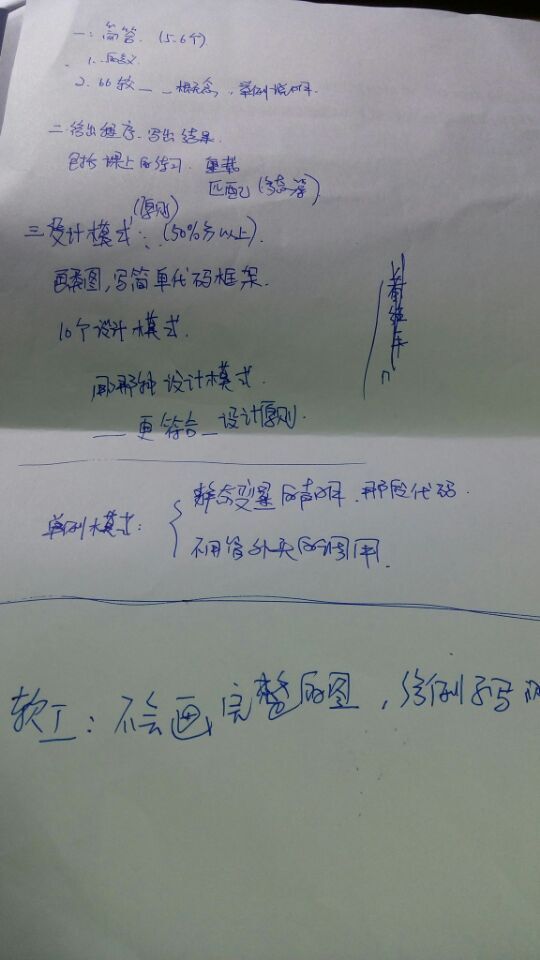 一：简答．（5.6个）
1. 定义
2. 比较——概念，举例说明．
二．给出程序．写出结果．
包括课上的练习．重载
匹配（多态等）
（原则）
三．设计模式：（50%分以上）．
画类图，写简单代码框架．
10个设计模式．
用哪种设计模式．
——更符合—设计原则．
单例模式：
静态变量的声明．那段代码．
不用管外头的调用．
软工：不会画完整的图，给例子写